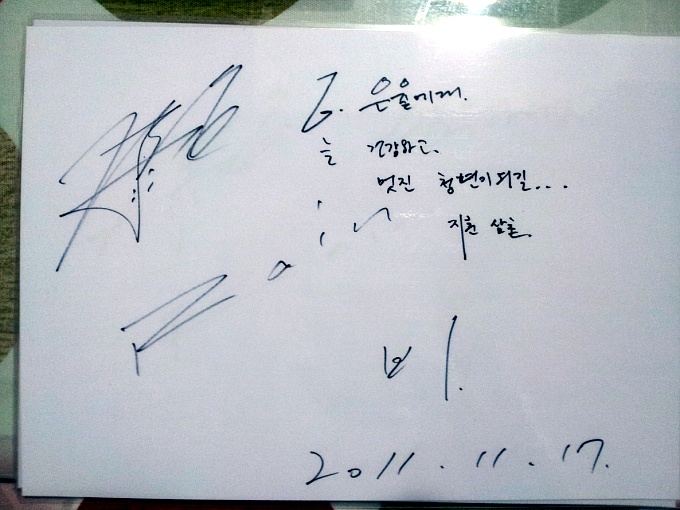 To. 은율에게.
늘 건강하고.
멋진 청년이 되길...
지훈 삼촌.
Rain
비.
2011.11.17.